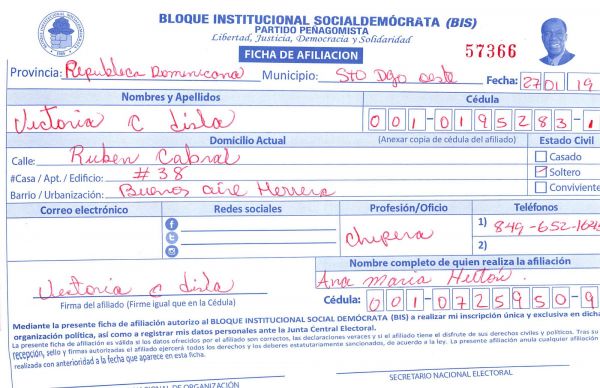 BLOQUE INSTITUCIONAL SOCIALDEMÓCRATA (BIS)
PARTIDO PEÑAGOMISTA
Libertad, Justicia, Democracia y Solidaridad
FICHA DE AFILIACION
57366
Provincia: Republica Dominicana Municipio: Sto Dgo oeste Fecha: 27 01 19
Nombres y Apellidos Cédula
Victoria C disla 001-0195283-1
Domicilio Actual (Anexar copia de cédula del afiliado) Estado Civil
Calle: Ruben Cabral Casado
#Casa / Apt. / Edificio: #38 Soltero
Barrio / Urbanización: Buenos aire Herrera Conviviente
Correo electrónico Redes sociales Profesión/Oficio Teléfonos
Chipera 1) 849-652-1645
2)
Nombre completo de quien realiza la afiliación
Victoria C disla Ana Maria
Firma del afiliado (Firme igual que en la Cédula) Cédula: 001-0725950-9
Mediante la presente ficha de afiliación autorizo al BLOQUE INSTITUCIONAL SOCIAL DEMÓCRATA (BIS) a realizar mi inscripción única y exclusiva en dicha
organización política, así como a registrar mis datos personales ante la Junta Central Electoral.
La presente ficha de afiliación es válida si los datos ofrecidos por el afiliado son correctos, las declaraciones veraces y si el afiliado tiene el disfrute de sus derechos civiles y políticos. Tras su
recepción, sello y firmas autorizadas el afiliado ejercerá todos los derechos y los deberes estatutariamente sancionados, de acuerdo a la ley. La presente afiliación anula cualquier afiliación
realizada con anterioridad a la fecha que aparece en esta ficha.
NACIONAL DE ORGANIZACIÓN SECRETARIO NACIONAL ELECTORAL